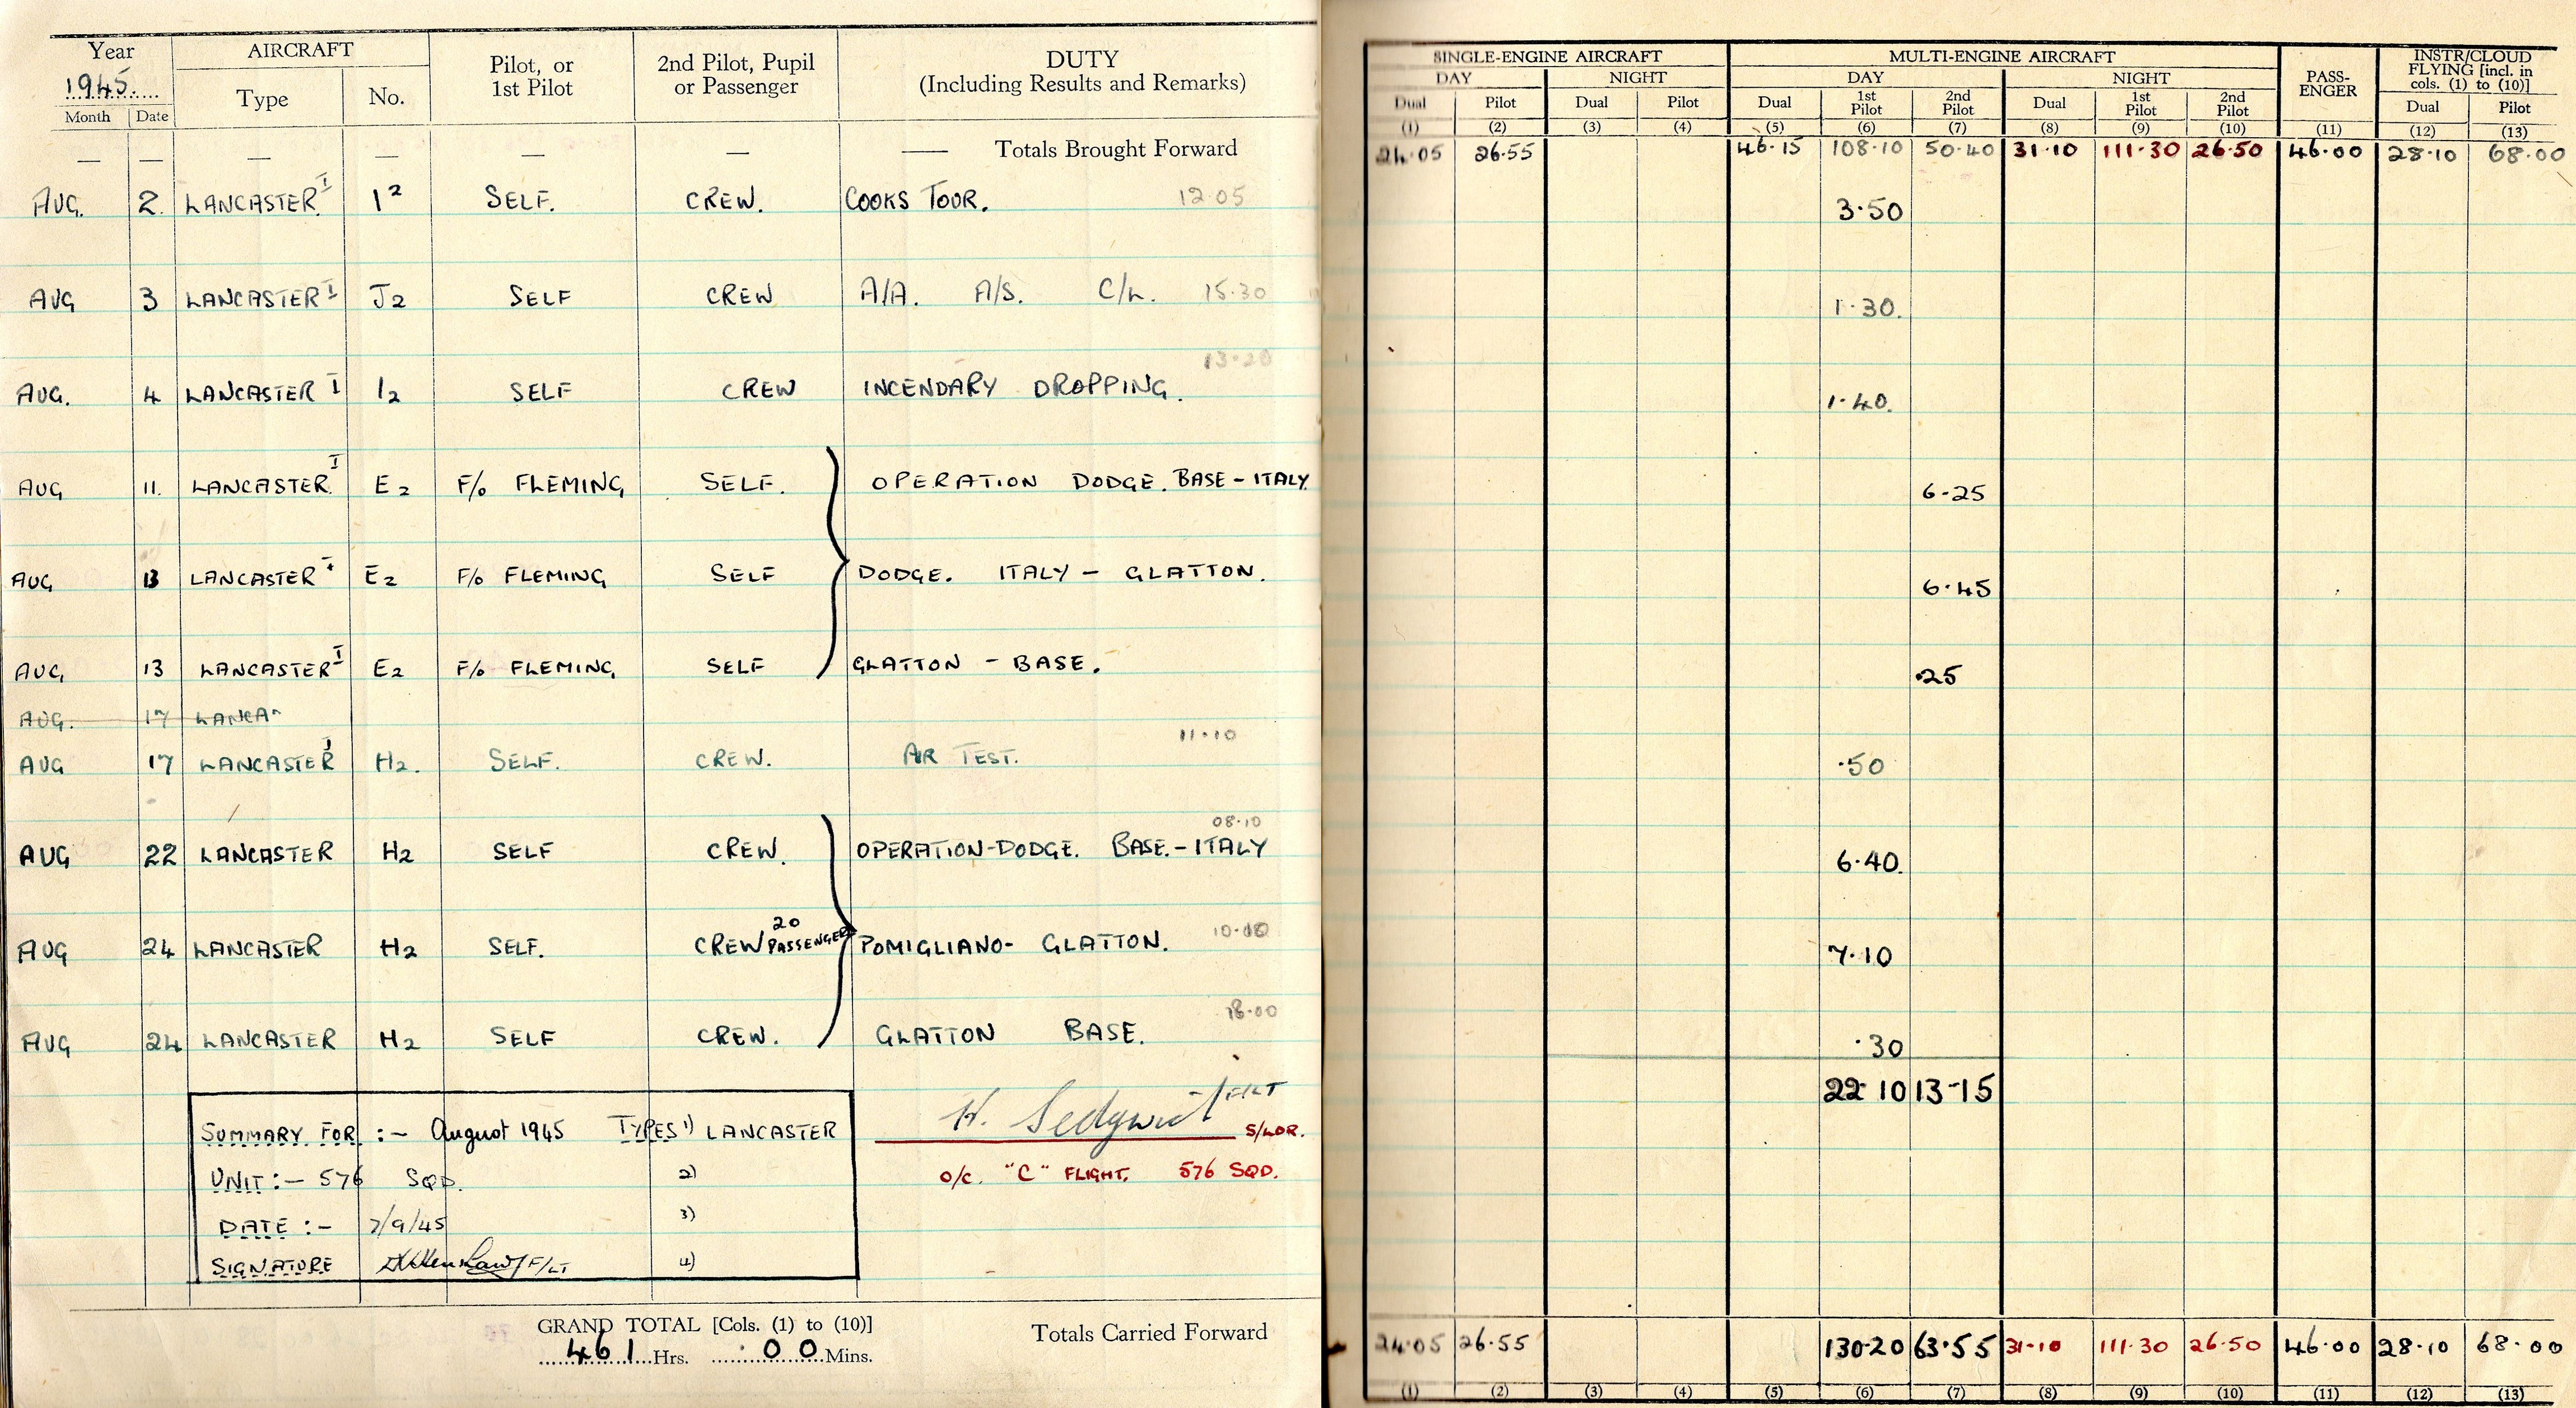 Year AIRCRAFT Pilot, or 1st Pilot 2nd Pilot, Pupil or Passenger DUTY (Including Results and Remarks) SINGLE-ENGINE AIRCRAFT MULTI-ENGINE AIRCRAFT PASS-ENGER INSTR/CLOUD FLYING [incl. in cols. (1) to (10)]
1945. Type No. DAY NIGHT DAY NIGHT
Month Date Dual Pilot Dual Pilot Dual 1st Pilot 2nd Pilot Dual 1st Pilot 2nd Pilot Dual Pilot
(1) (2) (3) (4) (5) (6) (7) (8) (9) (10) (11) (12) (13)
— — — — — — — Totals Brought Forward 24.05 26.55 46.15 108.10 50.40 31.10 111.30 26.50 46.00 28.10 68.00
AUG. 2. LANCASTER. I I2 SELF. CREW. COOKS TOUR. 12.05 3.50
AUG 3 LANCASTER I J2 SELF CREW A/A. A/S. C/L. 15.30 1.30.
AUG. 4 LANCASTER I I2 SELF CREW INCENDARY DROPPING. 13.20 1.40.
AUG 11. LANCASTER. I E2 F/O FLEMING SELF. OPERATION DODGE. BASE - ITALY. 6.25
AUG 13 LANCASTER I E2 F/O FLEMING SELF DODGE. ITALY - GLATTON. 6.45
AUG 13 LANCASTER I E2 F/O FLEMING SELF GLATTON - BASE. .25
AUG. 17 LANCA
AUG 17 LANCASTER I H2. SELF. CREW. AIR TEST. 11.10 .50
AUG 22 LANCASTER H2 SELF CREW. OPERATION-DODGE. BASE.-ITALY 08.10 6.40.
AUG 24 LANCASTER H2 SELF. CREW 20 PASSENGERS POMIGLIANO- GLATTON. 7.10
AUG 24 LANCASTER H2 SELF CREW. GLATTON BASE. 18.00 .30
22.10 13-15
SUMMARY FOR :- August 1945 TYPES 1) LANCASTER H. Sedgwick F/LT S/LDR.
UNIT :- 576 SQD. 2) O/C. "C" FLIGHT. 576 SQD.
DATE :- 7/9/45 3)
SIGNATURE F/LT 4)
GRAND TOTAL [Cols. (1) to (10)] Totals Carried Forward 24.05 26.55 130.20 63.55 31.10 111.30 26.50 46.00 28.10 68.00
461 Hrs. 00 Mins.
(1) (2) (3) (4) (5) (6) (7) (8) (9) (10) (11) (12) (13)